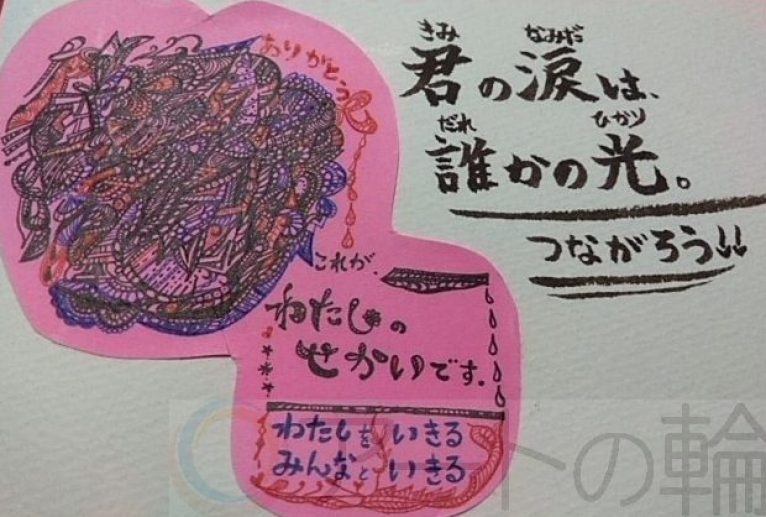 ありがとう
きみ なみだ
君の涙は、
だれ ひかり
誰かの光。
つながろう!!
これが、
わたしの
せかいです。
わたしを いきる
みんなと いきる
アートの輪